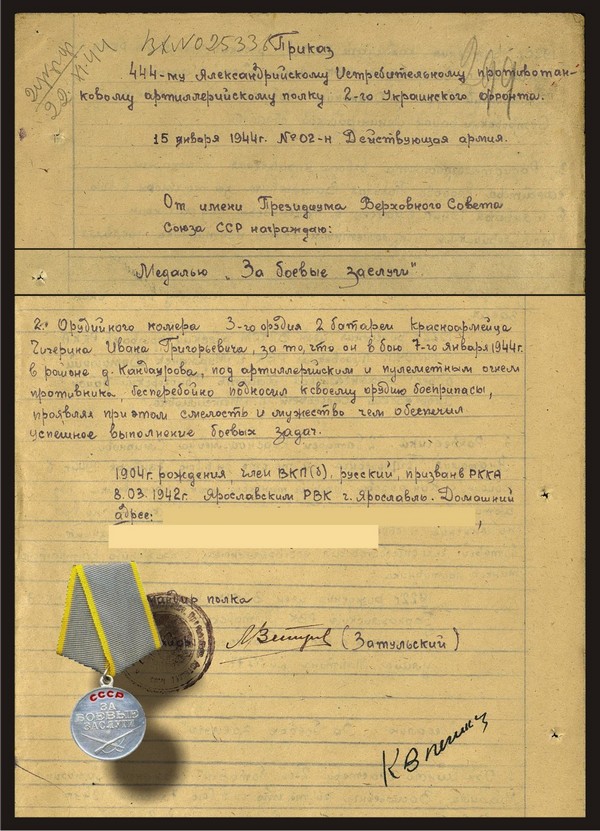 ВХ№025336 Приказ
444-му Александрийскому Истребительному противотан-
ковому артиллерийскому полку 2-го Украинского фронта.
15 января 1944г. №02-н Действующая армия.
От имени Президиума Верховного Совета
Союза ССР награждаю:
Медалью „За боевые заслуги".
2. Орудийного номера 3-го орудия 2 батареи Красноармейца
Чигерина Ивана Григорьевича, за то, что он в бою 7-го января 1944г.
в районе д. Кандаурова, под артиллерийским и пулеметным огнем
противника, бесперебойно подносил к своему орудию боеприпасы,
проявляя при этом смелость и мужество чем обеспечил
успешное выполнение боевых задач.
1904г. рождения, член ВКП(б). русский, призван в РККА
8.03.1942г. Ярославским РВК г. Ярославль. Домашний
адрес: ,
полка
(Затульский)
СССР
ЗА
БОЕВЫЕ
ЗАСЛУГИ